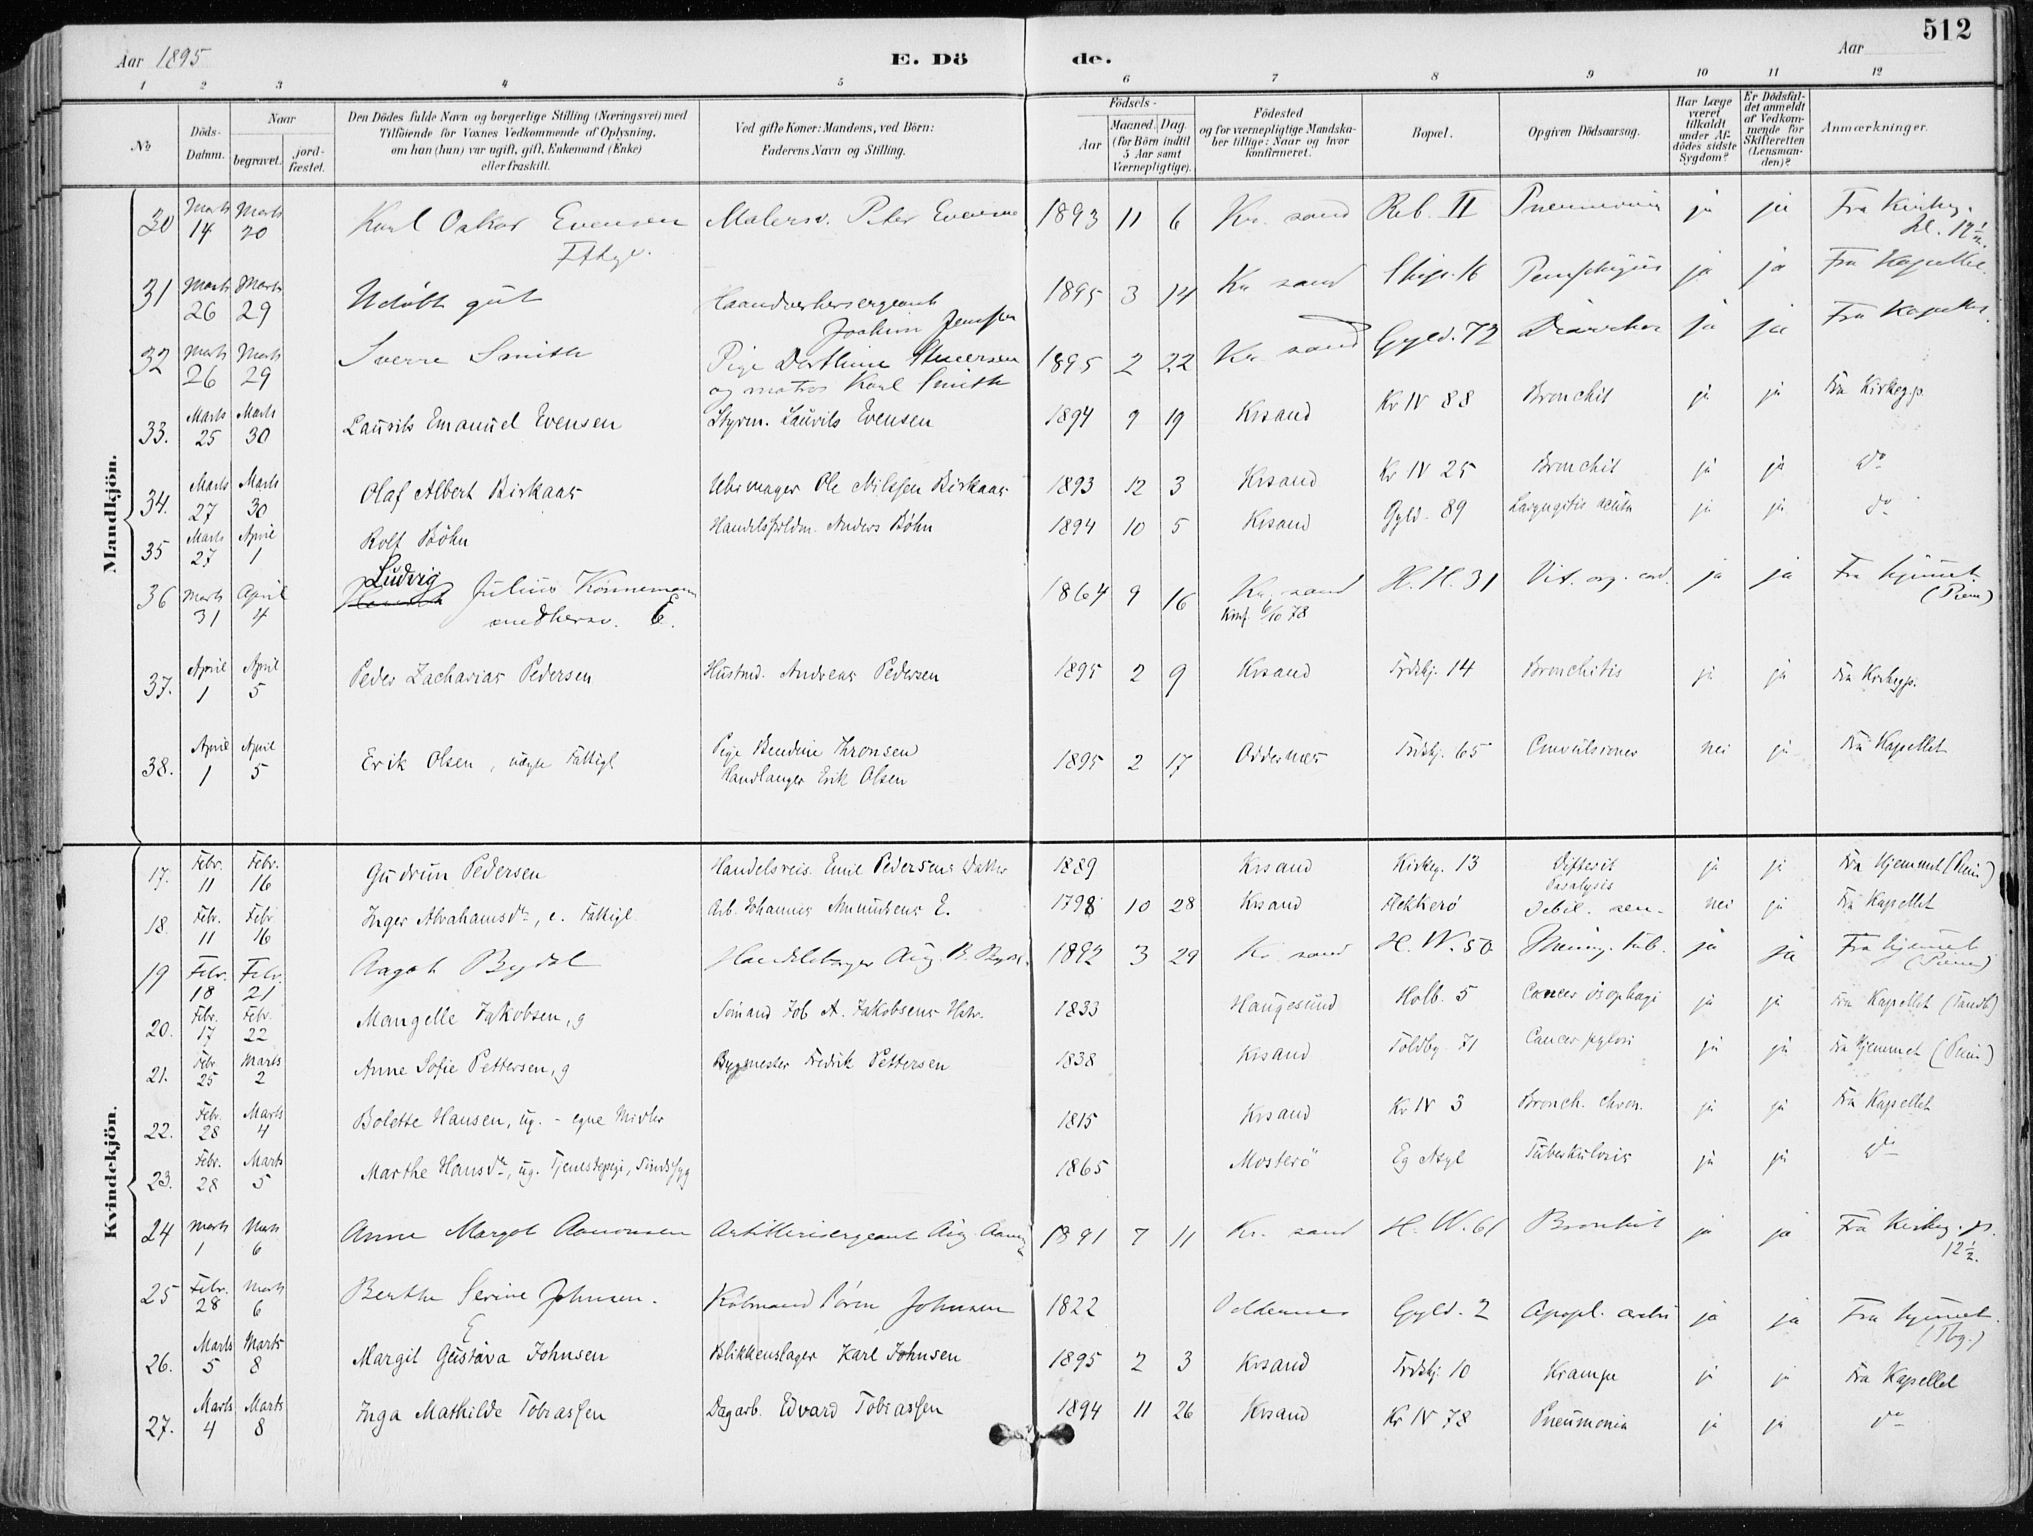 512
Aar 1895
E. Dö
de.
Aar
1 2 3 4 5 6 7 8 9 10 11 12
No
Döds-Datum.
Naar
begravet.
jord-fæstet.
Den Dödes fulde Navn og borgerlige Stilling (Næringsvei) med
Tilföiende for Voxnes Vedkommende af Oplysning,
om han (hun) var ugift, gift, Enkemand (Enke)
eller fraskilt.
Ved gifte Koner: Mandens, ved Börn:
Faderens Navn og Stilling.
Födsels-
Aar
Maaned. Dag.
(for Börn indtil
5 Aar samt
Værnepligtige).
Födested
og for værnepligtige Mandska-
ber tillige: Naar og hvor
konfirmeret.
Bopæl.
Opgiven Dödsaarsag.
Har Læge
været
tilkaldt
under Af-
dödes sidste
Sygdom?
Er Dödsfal-
det anmeldt
af Vedkom-
mende for
Skifteretten
(Lensman-
den)?
Anmærkninger.
Mandkjön.
30 Marts 14 Marts 20 Karl Oskar Evensen Malersv. Peter Evensen 1893 11 6 Kr. sand Reb. II Pneumonia ja ja Fra Kirkeg. kl. 12½.
31 Marts 26 Marts 29 Udøbt gut Haandverkersergeant Joakim Jensen 1895 3 14 Kr sand Skip. 16 Pemphigus ja ja Fra Kapellet.
32 Marts 26 Marts 29 Sverre Smith Pige Dorthine og matros Karl Smith 1895 2 22 Kr. sand Gyld. 72 Diarrhoe ja ja Fra Kapellet.
33. Marts 25 Marts 30 Laurits Emanuel Evensen Styrm. Laurits Evensen 1894 9 19 Krsand Kr IV 88 Bronchit ja ja Fra Kirkegp.
34. Marts 27 Marts 30 Olaf Albert Birkaas Uhrmager Ole Nilssen Birkaas 1893 12 3 Krsand Kr IV 25 Bronchit ja ja do
35 Marts 27 April 1 Rolf Bøhn Anders Bøhn 1894 10 5 Krsand Gyld. 89 Laryngitis acuta ja ja do
36 Marts 31 April 4 Ludvig Julius Könnemann smedkersv. E. 1864 9 16 Kr. sand Konf. 6/10 78 H. H. 31 Vit. org. cord. ja ja Fra hjemmet (Priem)
37. April 1 April 5 Peder Zacharias Pedersen Hustmd. Andreas Pedersen 1895 2 9 Krsand Frdskj. 14 Bronchitis ja ja Fra Kirkegp.
38. April 1 April 5 Erik Olsen, uægte Fattigl Pige Bendine Thronsen Handlanger Erik Olsen 1895 2 17 Oddernes Frdskj. 65 Convulsiones nei ja Fra Kapellet
Kvindekjön.
17. Febr. 11 Febr. 16 Gudrun Pedersen Handelsreis. Emil Pedersens Datter 1889 Krsand Kirkeg. 13 Difterit Paralysis ja ja Fra Hjemmet (Priem)
18. Febr. 11 Febr 16 Inger Abrahamsdr, e. Fattigl. Arb. Johannes Amundsens E. 1798 10 28 Krsand Flekkerö Debil. sen- nei ja Fra Kapellet
19 Febr. 18 Febr. 21 Ragnh Bydal Aug. B. Bydal. 1892 3 29 Kr. sand H. W. 50 Mening. tub. ja ja Fra hjemmet (Priem)
20. Febr. 17 Febr. 22 Mangelle Jakobsen, g Sömand Job A. Jakobsens Hstr. 1833 Haugesund Holb. 5 Cancer ösophagi ja ja Fra Kapellet (Tandb)
21. Febr 25 Marts 2 Anne Sofie Pettersen, g Bygmester Fredrik Pettersen 1838 Krsand Toldbg. 71 Cancer pylori ja ja Fra Hjemmet (Priem)
22. Febr. 28 Marts 4 Bolette Hansen, ug. - egne Midler 1815 Krsand Kr IV 3 Bronch. chron. ja ja Fra Kapellet
23. Febr. 28 Marts 5 Marthe Hansdr, ug. Tjenestepige, Sindssyg 1865 Mosterö Eg Asyl Tuberkulosis ja ja do
24 Marts 1 Marts 6 Anne Margot Aanonsen Artillerisergeant Aug. 1891 7 11 Kr. sand H. W. 61 Bronchit ja ja Fra Kirkeg. p. 12½.
25 Febr. 28 Marts 6 Berthe Serine Johnsen. E Købmand Sören Johnsen 1822 Oddernes Gyld. 2 Apopl. cerebri ja ja Fra hjemmet. (Thg.)
26. Marts 5 Marts 8 Margit Gustava Johnsen Blikkenslager Karl Johnsen 1895 2 3 Krsand Frdskj. 10 Krampe ja ja Fra Kapellet
27. Marts 4 Marts 8 Inga Mathilde Tobiassen Dagarb. Edvard Tobiassen 1894 11 26 Krsand Kr IV 78 Pneumonia ja ja do